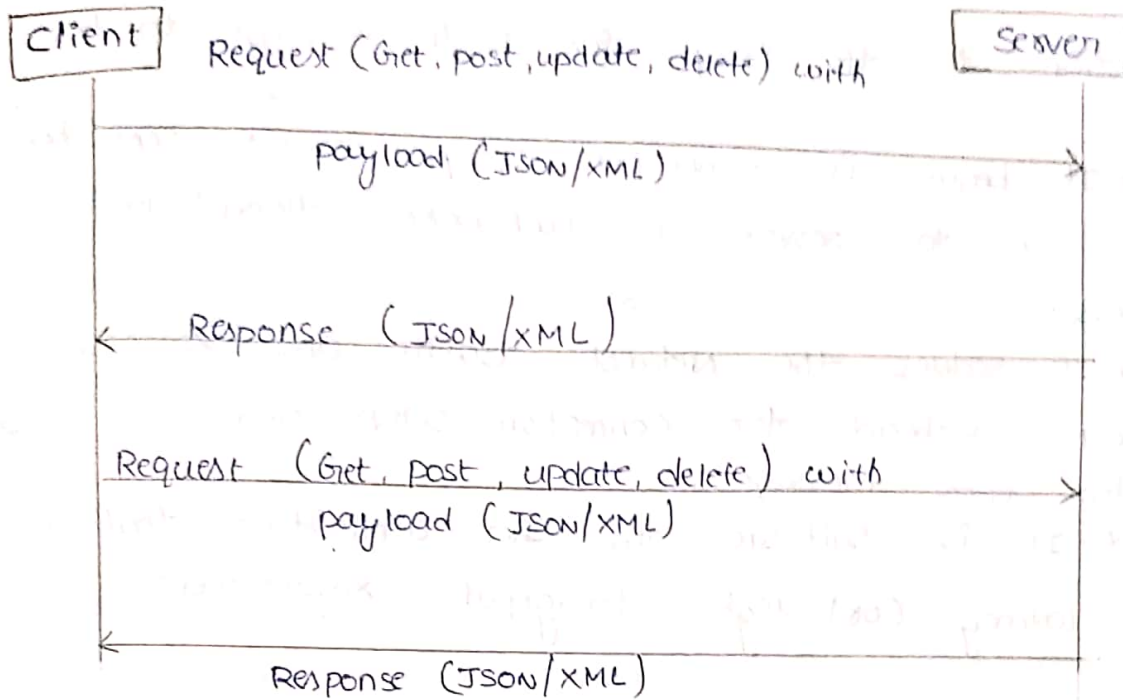 Client
Server
Request (Get, post, update, delete) with
payload (JSON/XML)
Response (JSON/XML)
Request (Get, post, update, delete) with
payload (JSON/XML)
Response (JSON/XML)